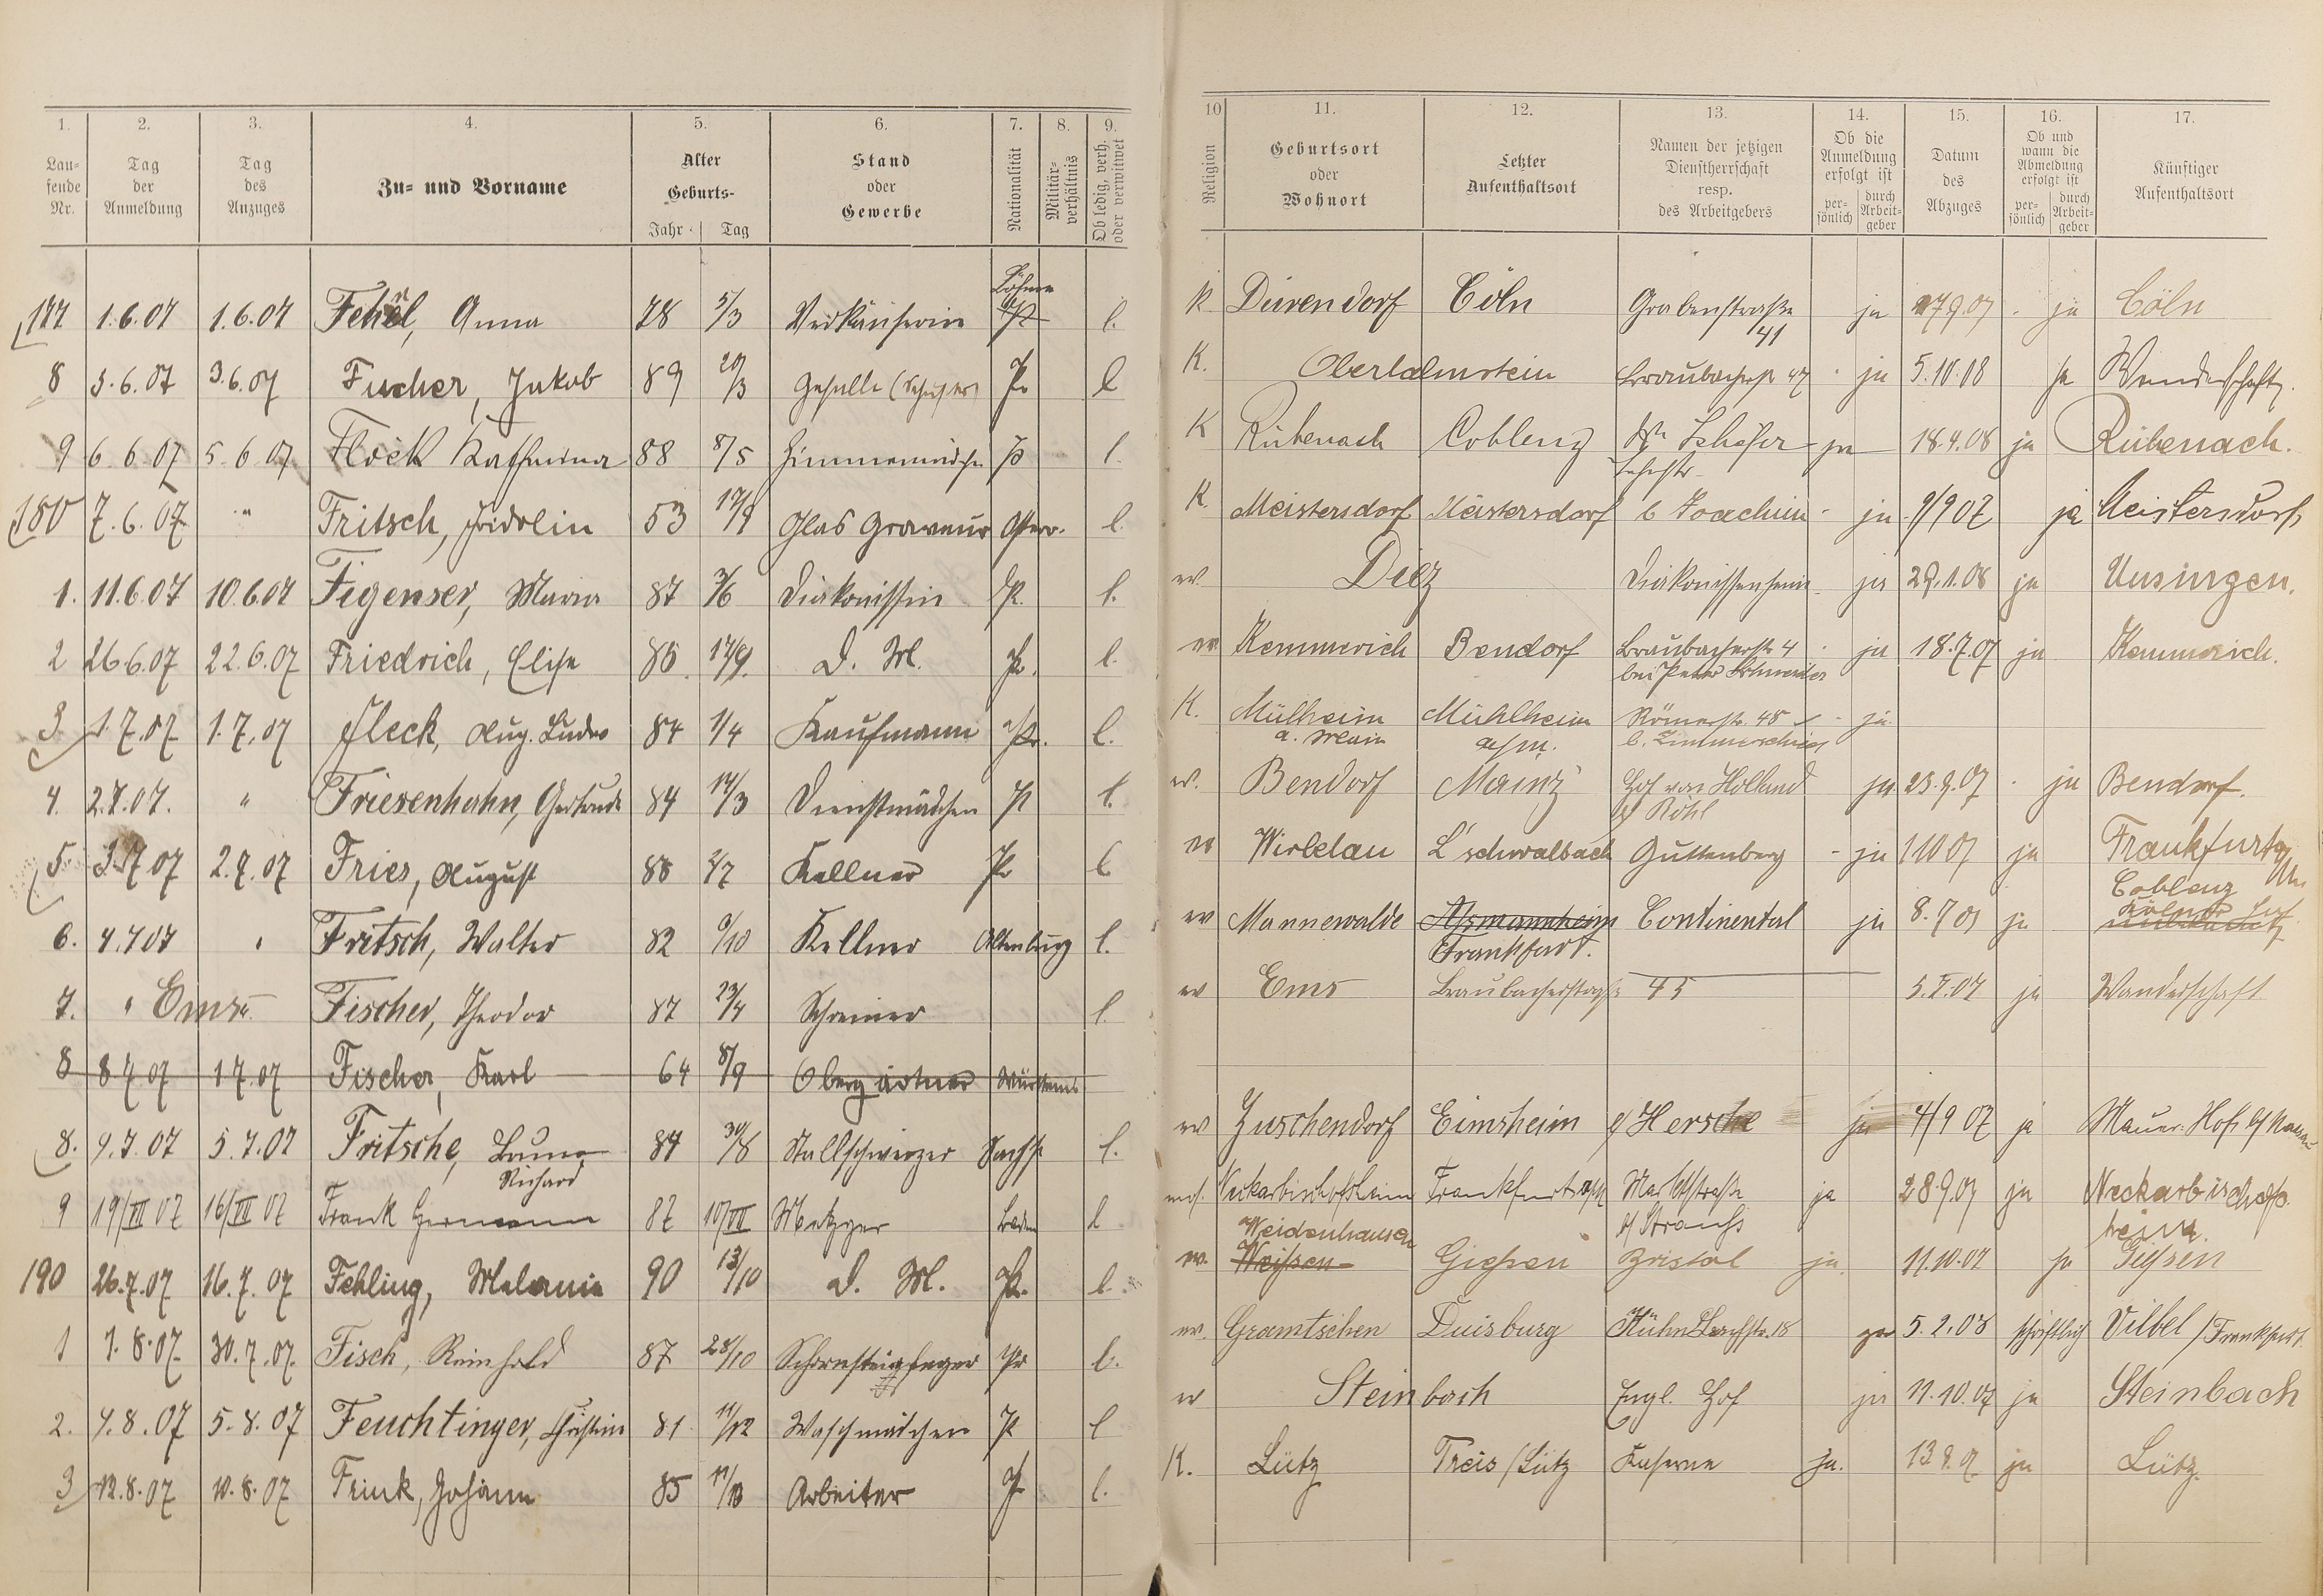 1. 2. 3. 4. 5. 6. 7. 8. 9. 10 11. 12. 13. 14. 15. 16. 17.
Lau-
fende
Nr.
Tag
der
Anmeldung
Tag
des
Anzuges
Zu- und Vorname
Alter
Geburts-
Jahr Tag
Stand
oder
Gewerbe
Nationalität
Militär-
verhältnis
Ob ledig, verh.
oder verwitwet
Religion
Geburtsort
oder
Wohnort
Letzter
Aufenthaltsort
Namen der jetzigen
Dienstherrschaft
resp.
des Arbeitgebers
Ob die
Anmeldung
erfolgt ist
per-
sönlich
durch
Arbeit-
geber
Datum
des
Abzuges
Ob und
wann die
Abmeldung
erfolgt ist
per-
sönlich
durch
Arbeit-
geber
Künftiger
Aufenthaltsort
177 1.6.07 1.6.07 Anna 78 5/3 Verkäuferin l. K. Cöln Grabenstraße 41 ja ja Cöln
8 3.6.07 3.6.07 Jakob 89 20/3 Geselle Pr l K. Oberlahnstein 47 ja 5.10.08 ja Wanderschaft.
9 6 6 07 5.6 07 Flöck Katharina 88 8/5 Zimmermädchen P l. K Rübenach Coblenz ja 18.4.08 ja Rübenach.
180 7.6.07 " Fritsch, Fridolin 53 Glas Graveur Österr. l. K. Meistersdorf Meistersdorf b Joachim ja 9/9 07 ja Meistersdorf
1. 11.6.07 10.6.07 Figenser, Maria 87 3/6 Diakonissin Pr. l. ev. Diez Diakonissenheim ja 29.1.08 ja Uusingen.
2 26 6.07 22.6.07 Friedrich, Elise 86. 17/9. D. M. Pr. l. ev Kemmerich Bendorf Braubacherstr 4 ja 18.7.07 ja Kemmerich.
bei Peter
3. 1.7.07 1.7.07 Fleck, Aug. 84 1/4 Kaufmann Pr. l. K. Mülheim Mühlheim Römerstr. 45 ja
a. Main a/m.
4. 2.7.07. " Friesenhahn, Gertrude 84 14/3 Dienstmädchen P l. ev. Bendorf Mainz Hof von Holland ja 23.9.07 ja Bendorf.
b/ Röhl
5. 3.7 07 2.7.07 Fries, August 88 2/7 Kellner Pr l ev Wirbelau L'schwalbach Guttenberg ja 1 10 07 ja Frankfurt
6. 4.7 07 " Fritsch, Walter 82 9/10 Kellner Altenburg l. ev Mannewalde Frankfurt. Continental ja ja Coblenz
7. " Ems Fischer, Theodor 87 23/4 Schreiner l. ev Ems Braubacherstraße 45 ja Wanderschaft
8 8 7 07 1 7.07 Fischer, Karl 64 8/9 Obergärtner Württemb
8. 5.7.07 Fritsche, Bruno 84 30/8 Stallschweizer Sachse l. ev Zuschendorf Eimsheim b/ Hersche ja 4/9 07 ja Mauer. Hof
Richard
9 19/VII 07 16/VII 07 Frank Hermann 87 10/VII Metzger Baden l Neckarbischofsheim Frankfurt Marktstraße ja 28 9.07 ja Neckarbischofs-
b/ Strauß heim.
190 26.7.07 16.7.07 Fehling, Melanie 90 13/10 D. M. Pr. l. ev. Weidenhausen Gießen Bristol ja 11.10.07 ja Gießen
1 1.8.07. 30.7.07. Fisch, Reinhold 87 28/10 Schornsteinfeger Pr l. ev. Gramtschen Duisburg Kühn 18 ja 5.2.08 schriftlich Vilbel / Frankfurt.
2. 7.8.07 5.8.07 Feuchtinger, Christine 81 11/12 Waschmädchen P l ev Steinbach Engl. Hof ja 11.10.07 ja Steinbach
3 12.8.07 10.8.07 Frink, Johann 85 Arbeiter Pr l. K. Lütz Treis / Lütz Kaserne ja. ja Lütz.